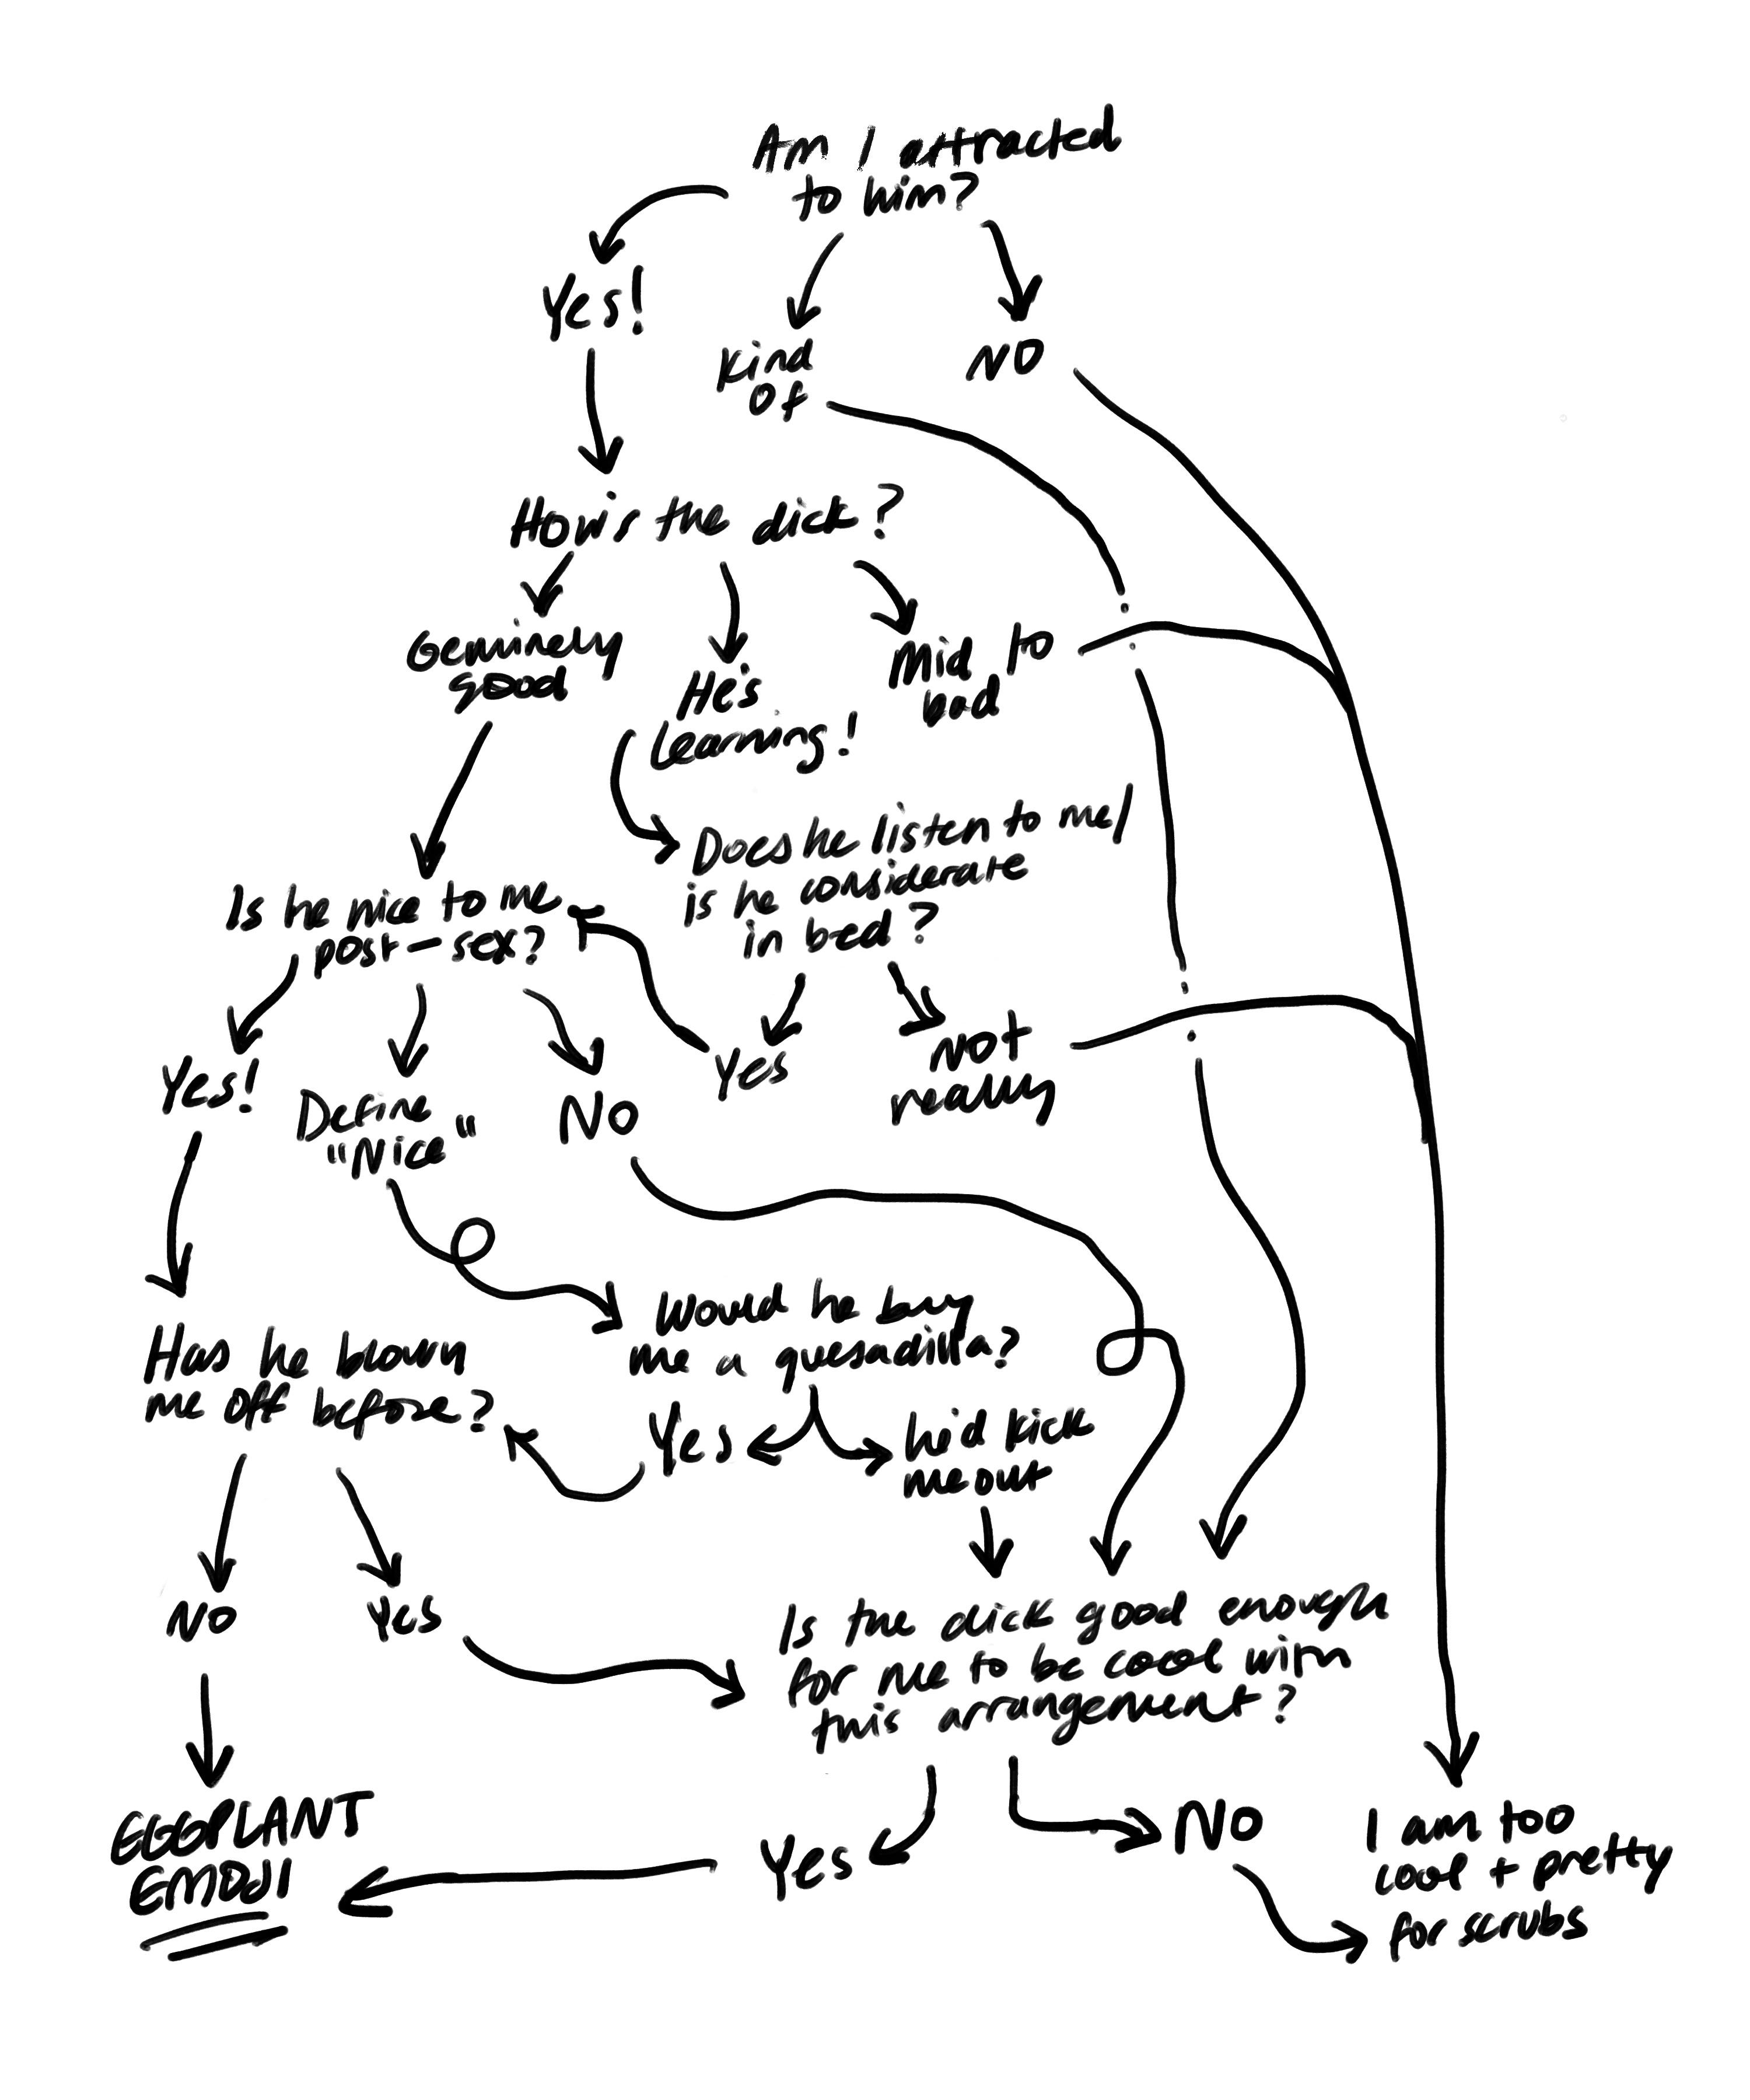 Am I attracted
to him?
Yes!
Kind
Of
NO
How's the dick?
Genuinely
good
He's
learning!
Mid to
bad
Does he listen to me/
is he considerate
in bed?
Is he nice to me
post-sex?
Yes
Not
really
Yes!
Define
"Nice"
No
Would he buy
me a quesadilla?
Has he blown
me off before?
Yes
he'd kick
me out
No
Yes
Is the dick good enough
for me to be cool with
this arrangement?
Yes
No
EGGPLANT
EMOJI
I am too
cool + pretty
for scrubs